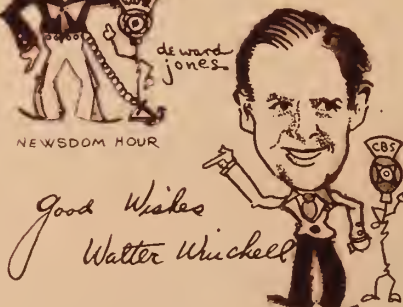 deward
jones
NEWSDOM HOUR
CBS
Good Wishes
Walter Winchell